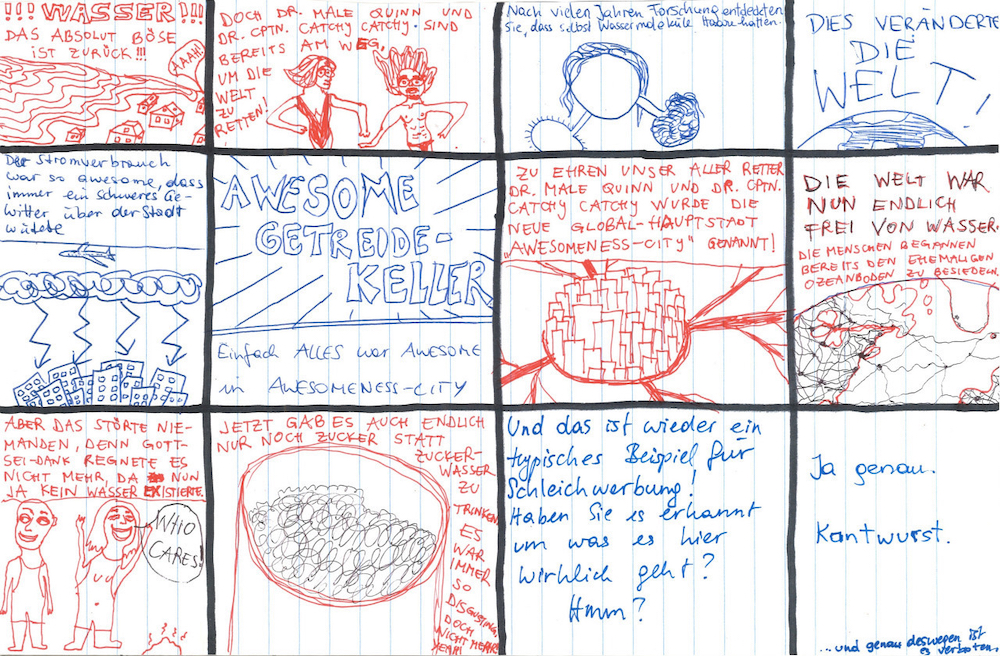 !!! WASSER!!!
DAS ABSOLUT BÖSE
IST ZURÜCK!!!
AAAH!
DOCH DR. MALE QUINN UND
DR. CPTN. CATCHY CATCHY SIND
BEREITS AM WEG,
UM DIE
WELT
ZU
RETTEN!
Nach vielen Jahren Forschung entdeckten
Sie, dass selbst Wassermoleküle Haare hatten.
DIES VERÄNDERTE
DIE
WELT!
Der Stromverbrauch
war so awesome, dass
immer ein schweres Ge-
witter über der Stadt
wütete
AWESOME
GETREIDE-
KELLER
Einfach ALLES war AWESOME
in AWESOMENESS-CITY
ZU EHREN UNSER ALLER RETTER
DR. MALE QUINN UND DR. CPTN.
CATCHY CATCHY WURDE DIE
NEUE GLOBAL-HAUPTSTADT
„AWESOMENESS-CITY“ GENANNT!
DIE WELT WAR
NUN ENDLICH
FREI VON WASSER.
DIE MENSCHEN BEGANNEN
BEREITS DEN EHEMALIGEN
OZEANBODEN ZU BESIEDELN.
ABER DAS STÖRTE NIE-
MANDEN, DENN GOTT-
SEI-DANK REGNETE ES
NICHT MEHR, DA NUN
JA KEIN WASSER EXISTIERTE.
WHO
CARES!
JETZT GAB ES AUCH ENDLICH
NUR NOCH ZUCKER STATT
ZUCKER-
WASSER
ZU
TRINKEN.
ES
WAR
IMMER
SO
DISGUSTING,
DOCH
NICHT MEHR
MEHR!
Und das ist wieder ein
typisches Beispiel für
Schleichwerbung!
Haben Sie es erkannt
um was es hier
wirklich geht?
Hmm?
Ja genau.
Kantwurst.
...und genau deswegen ist
es verboten.